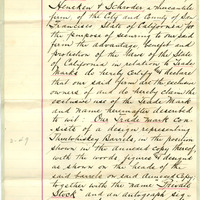 Hencken & Schroder, a mercantile
firm of the City and County of San
Francisco State of California for
the purpose of securing to our said
firm the advantage benefit and
protection of the laws of the State
of California in relation to Trade
Marks do hereby certify & declare
that our said firm are the exclusive
owners of and do hereby claim the
exclusive use of the Trade Mark
and name hereinafter described
to wit: Our Trade mark con-
sists of a design representing
Whiskey Barrels, in the position
shown in the annexed copy hereof
with the words figures & designs
as shown on the heads of the
said barrels on said annexed copy
together with the name "Private
Stock" and an autograph sig-